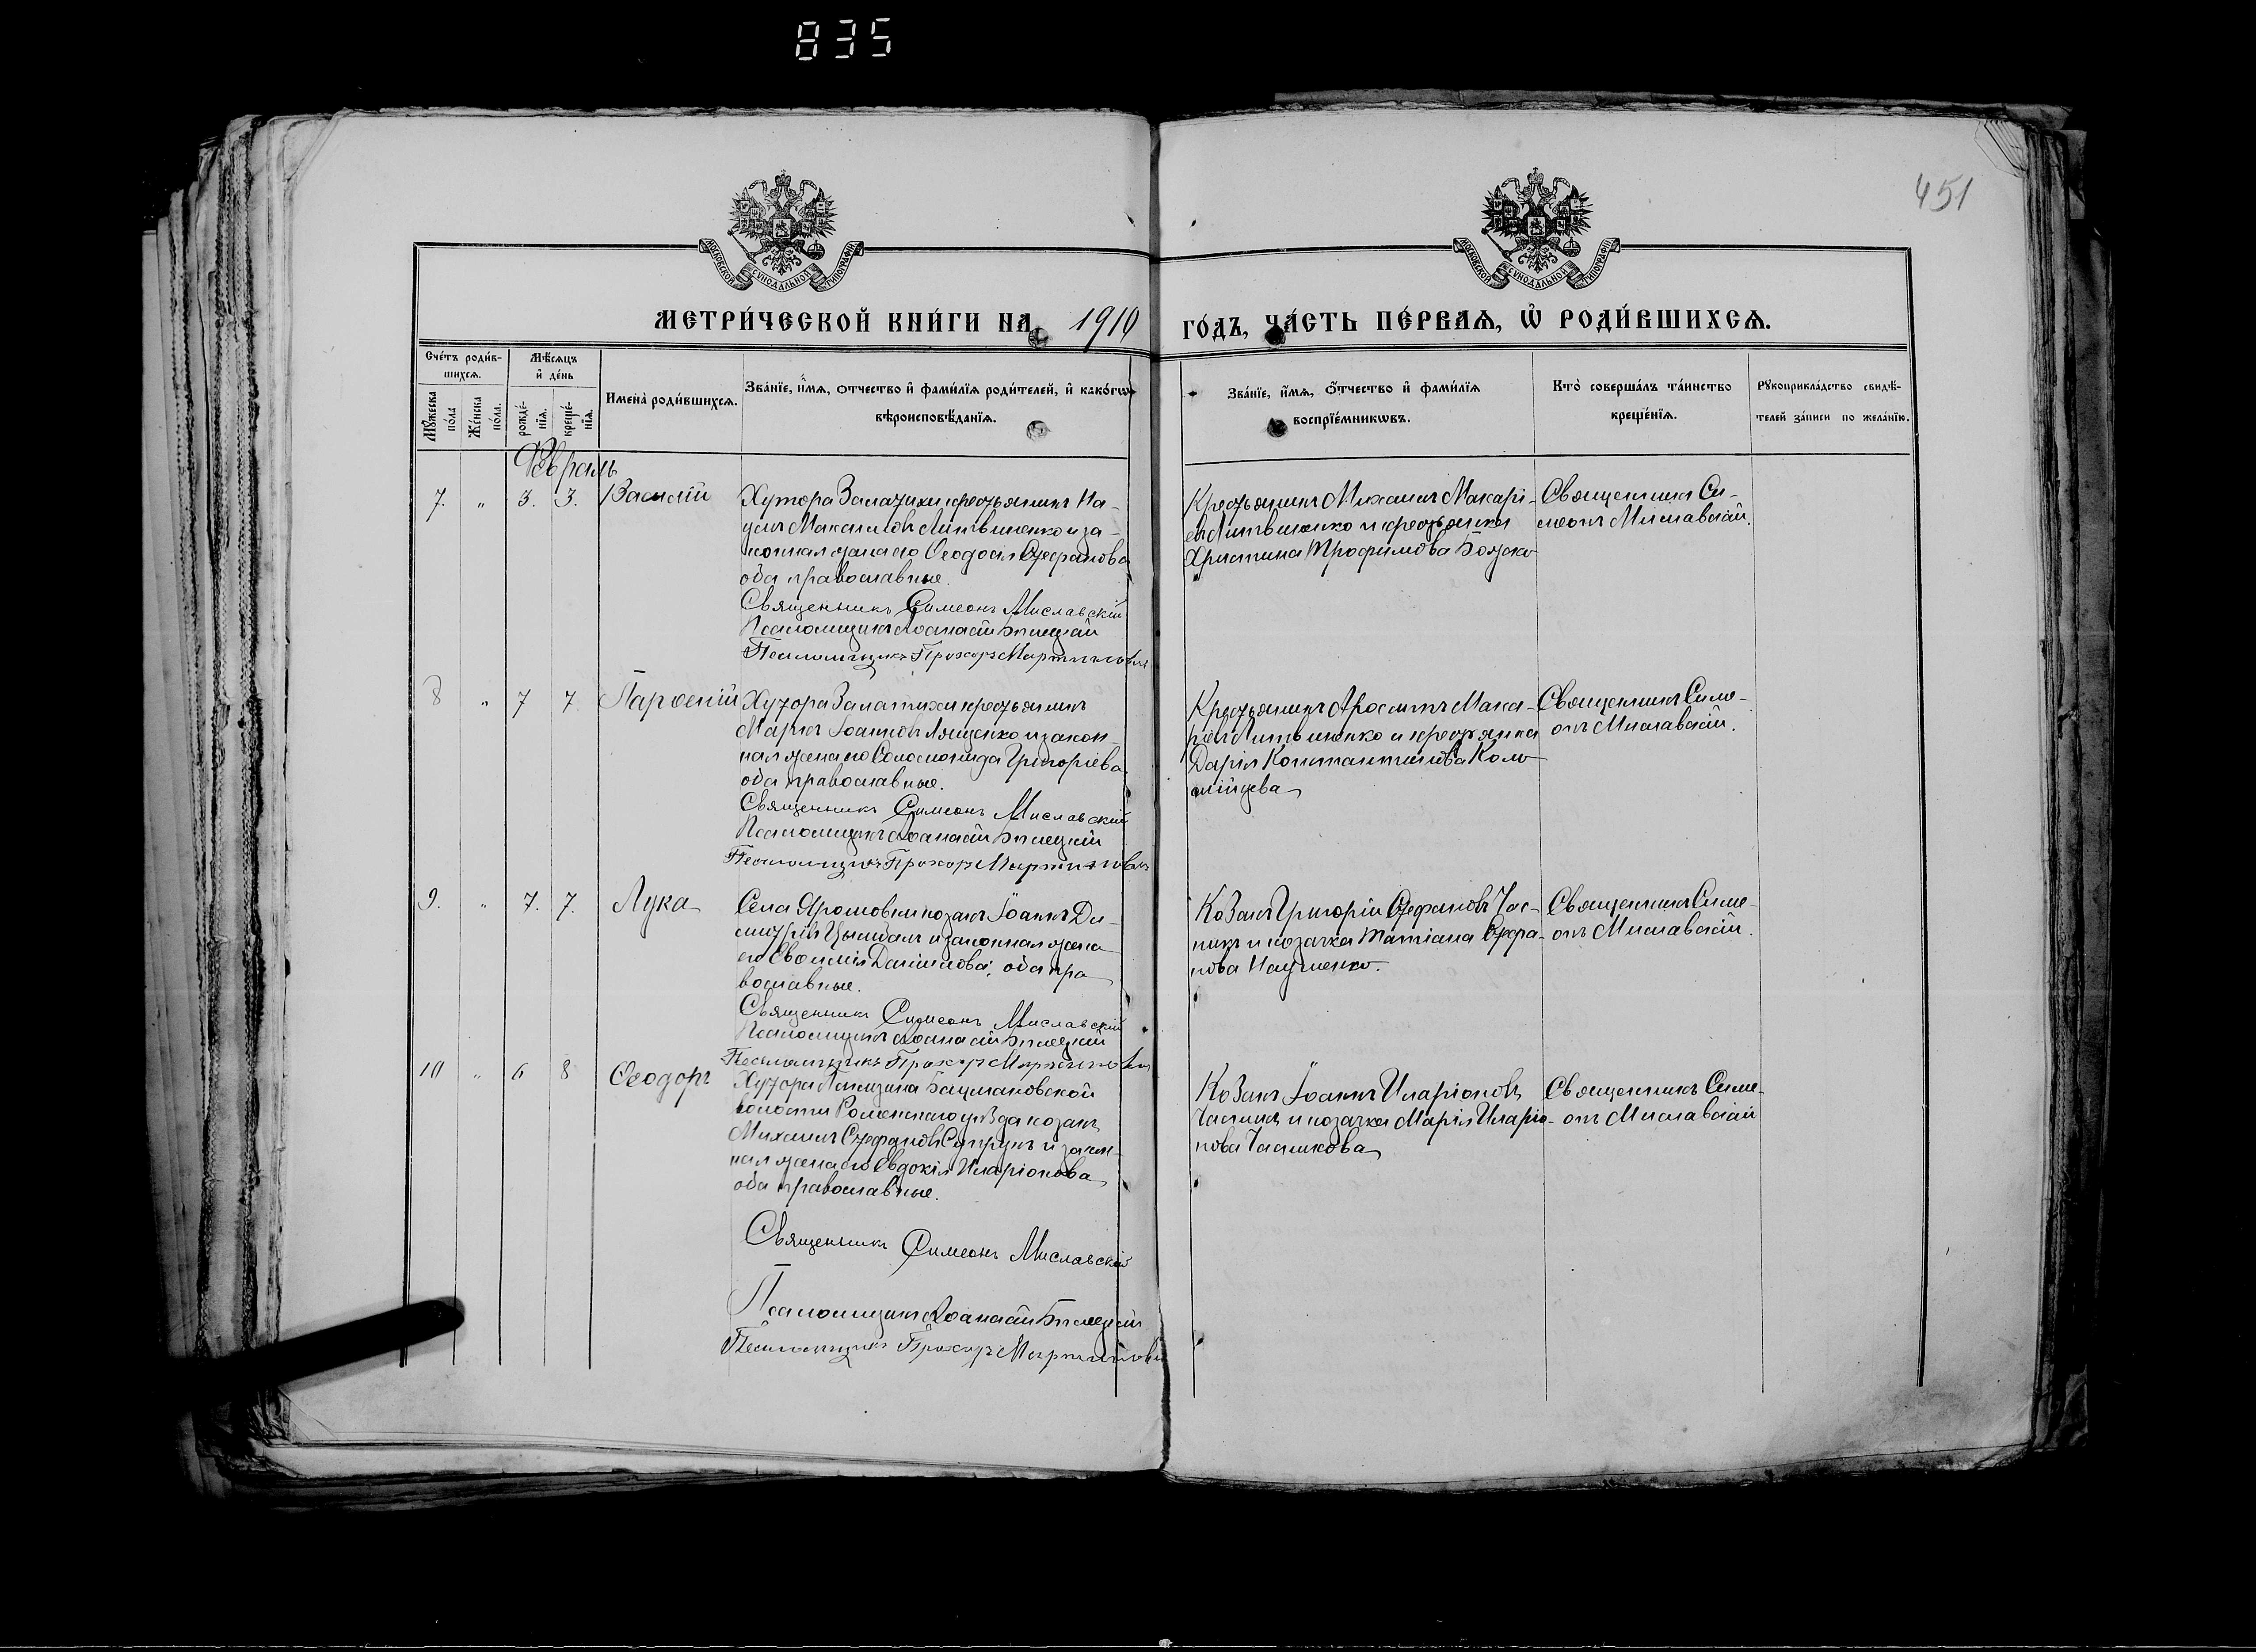 835
451
МОСКОВСКОЙ СѴНОДАЛЬНОЙ ТИПОГРАФІИ
МОСКОВСКОЙ СѴНОДАЛЬНОЙ ТИПОГРАФІИ
МЕТРИ́ЧЕСКОЙ КНИ́ГИ НА 1910 ГО́ДЪ, ЧА́СТЬ ПЕ́РВАѦ, Ѡ҆ РОДИ́ВШИХСѦ.
Сче́тъ роди́в-
шихсѧ.
Мꙋ́жеска по́ла
Же́нска по́ла.
Мѣ́сѧцъ
и҆ де́нь
рожде́-
нїѧ.
креще́-
нїѧ.
Имена̀ роди́вшихсѧ.
Зва́нїе, и҆́мѧ, ѻ҆́тчество и҆ фами́лїѧ роди́телей, и҆ како́гѡ
вѣроисповѣ́данїѧ.
Зва́нїе, и҆́мѧ, ѻ҆́тчество и҆ фами́лїѧ
воспрїе́мникѡвъ.
Кто̀ соверша́лъ та́инство
креще́нїѧ.
Рꙋкоприкла́дство свидѣ́-
телей за́писи по жела́нїю.
Февраль
7. „ 3. 3. Василій
Хутора Залатихи крестьянинъ
Максимовъ Литвиненко и за-
конная жена его Ѳеодосія Стефанова
оба православные.
Священникъ Симеонъ Миславскій
Псаломщикъ Аѳанасій Бѣлецкій
Псаломщикъ Прохоръ Мартиновичъ
Крестьянинъ Михаилъ Макарі-
евъ Литвиненко и крестьянка
Христина Трофимова Божко
Священникъ Си-
меонъ Миславскій.
8 „ 7 7. Парѳеній
Хутора Залатихи крестьянинъ
Маркъ Іоанновъ Лященко и закон-
ная жена его Соломонида Григоріева
оба православные.
Священникъ Симеонъ Миславскій
Псаломщикъ Аѳанасій Бѣлецкій
Псаломщикъ Прохоръ Мартиновичъ
Крестьянинъ Мака-
ріевъ Литвиненко и крестьянка
Дарія Константинова Коло-
мійцева
Священникъ Симе-
онъ Миславскій.
9. „ 7. 7. Лука
Села Ярошовки козакъ Іоаннъ Ди-
митріевъ Цымбалъ и законная жена
его Евѳимія Даніилова, оба пра
вославные.
Священникъ Симеонъ Миславскій
Псаломщикъ Аѳанасій Бѣлецкій
Псаломщикъ Прохоръ Мартиновичъ
Козакъ Григорій Стефановъ Час-
никъ и козачка Татіана Стефа-
нова Науменко.
Священникъ Симе-
онъ Миславскій.
10 „ 6 8 Ѳеодоръ
Хутора Бацмановской
волости Роменскаго уѣзда козакъ
Михаилъ Стефановъ Супрунъ и закон-
ная жена его Евдокія Иларіонова
оба православные.
Священникъ Симеонъ Миславскій
Псаломщикъ Аѳанасій Бѣлецкій
Псаломщикъ Прохоръ Мартиновичъ
Козакъ Іоаннъ Иларіоновъ
Часникъ и козачка Марія Иларіо-
нова Часникова
Священникъ Симе-
онъ Миславскій